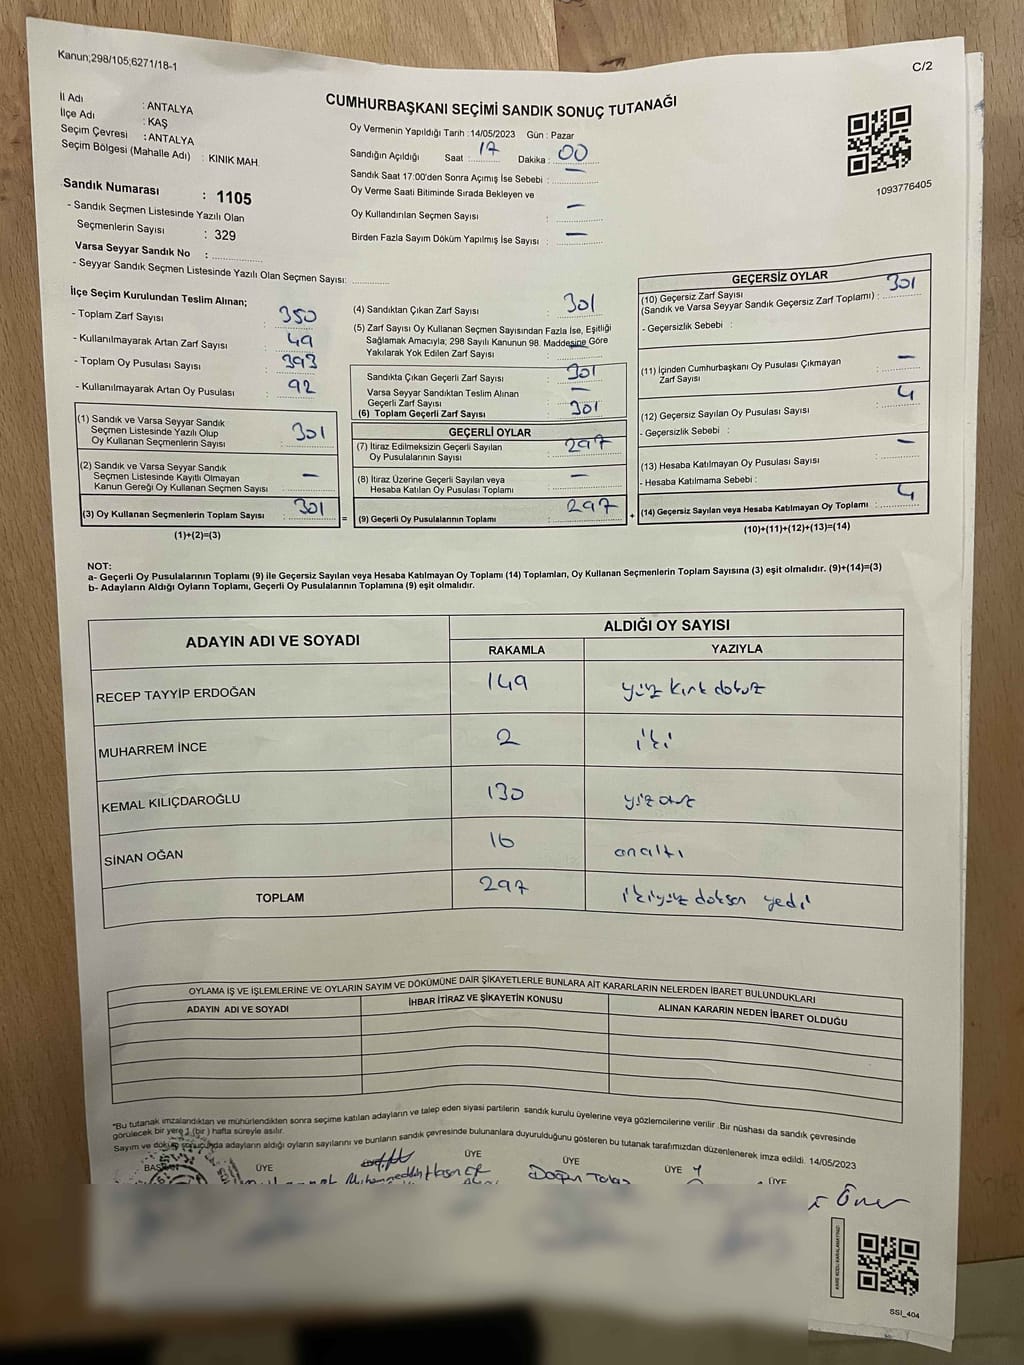 Kanun;298/105;6271/18-1
C/2
CUMHURBAŞKANI SEÇİMİ SANDIK SONUÇ TUTANAĞI
İl Adı : ANTALYA
İlçe Adı : KAŞ
Seçim Çevresi : ANTALYA
Seçim Bölgesi (Mahalle Adı) : KINIK MAH.
Sandık Numarası : 1105
- Sandık Seçmen Listesinde Yazılı Olan
Seçmenlerin Sayısı : 329
Varsa Seyyar Sandık No :
- Seyyar Sandık Seçmen Listesinde Yazılı Olan Seçmen Sayısı:
Oy Vermenin Yapıldığı Tarih :14/05/2023 Gün : Pazar
Sandığın Açıldığı Saat : 17 Dakika : 00
Sandık Saat 17:00'den Sonra Açımış İse Sebebi : —
Oy Verme Saati Bitiminde Sırada Bekleyen ve
Oy Kullandırılan Seçmen Sayısı : —
Birden Fazla Sayım Döküm Yapılmış İse Sayısı : —
1093776405
İlçe Seçim Kurulundan Teslim Alınan;
- Toplam Zarf Sayısı : 350
- Kullanılmayarak Artan Zarf Sayısı : 49
- Toplam Oy Pusulası Sayısı : 393
- Kullanılmayarak Artan Oy Pusulası : 92
(1) Sandık ve Varsa Seyyar Sandık
Seçmen Listesinde Yazılı Olup
Oy Kullanan Seçmenlerin Sayısı : 301
(2) Sandık ve Varsa Seyyar Sandık
Seçmen Listesinde Kayıtlı Olmayan
Kanun Gereği Oy Kullanan Seçmen Sayısı : —
(3) Oy Kullanan Seçmenlerin Toplam Sayısı : 301
(1)+(2)=(3)
=
(4) Sandıktan Çıkan Zarf Sayısı : 301
(5) Zarf Sayısı Oy Kullanan Seçmen Sayısından Fazla İse, Eşitliği
Sağlamak Amacıyla; 298 Sayılı Kanunun 98. Maddesine Göre
Yakılarak Yok Edilen Zarf Sayısı : —
Sandıkta Çıkan Geçerli Zarf Sayısı : 301
Varsa Seyyar Sandıktan Teslim Alınan
Geçerli Zarf Sayısı : —
(6) Toplam Geçerli Zarf Sayısı : 301
GEÇERLİ OYLAR
(7) İtiraz Edilmeksizin Geçerli Sayılan
Oy Pusulalarının Sayısı : 297
(8) İtiraz Üzerine Geçerli Sayılan veya
Hesaba Katılan Oy Pusulası Toplamı : —
(9) Geçerli Oy Pusulalarının Toplamı : 297
+
GEÇERSİZ OYLAR
(10) Geçersiz Zarf Sayısı
(Sandık ve Varsa Seyyar Sandık Geçersiz Zarf Toplamı) : 301
- Geçersizlik Sebebi :
(11) İçinden Cumhurbaşkanı Oy Pusulası Çıkmayan
Zarf Sayısı : —
(12) Geçersiz Sayılan Oy Pusulası Sayısı : 4
- Geçersizlik Sebebi :
(13) Hesaba Katılmayan Oy Pusulası Sayısı : —
- Hesaba Katılmama Sebebi :
(14) Geçersiz Sayılan veya Hesaba Katılmayan Oy Toplamı : 4
(10)+(11)+(12)+(13)=(14)
NOT:
a- Geçerli Oy Pusulalarının Toplamı (9) ile Geçersiz Sayılan veya Hesaba Katılmayan Oy Toplamı (14) Toplamları, Oy Kullanan Seçmenlerin Toplam Sayısına (3) eşit olmalıdır. (9)+(14)=(3)
b- Adayların Aldığı Oyların Toplamı, Geçerli Oy Pusulalarının Toplamına (9) eşit olmalıdır.
ADAYIN ADI VE SOYADI ALDIĞI OY SAYISI
RAKAMLA YAZIYLA
RECEP TAYYİP ERDOĞAN 149 yüz kırk dokuz
MUHARREM İNCE 2 iki
KEMAL KILIÇDAROĞLU 130 yüz otuz
SİNAN OĞAN 16 onaltı
TOPLAM 297 ikiyüz doksan yedi
OYLAMA İŞ VE İŞLEMLERİNE VE OYLARIN SAYIM VE DÖKÜMÜNE DAİR ŞİKAYETLERLE BUNLARA AİT KARARLARIN NELERDEN İBARET BULUNDUKLARI
ADAYIN ADI VE SOYADI İHBAR İTİRAZ VE ŞİKAYETİN KONUSU ALINAN KARARIN NEDEN İBARET OLDUĞU
*Bu tutanak imzalandıktan ve mühürlendikten sonra seçime katılan adayların ve talep eden siyasi partilerin sandık kurulu üyelerine veya gözlemcilerine verilir .Bir nüshası da sandık çevresinde
görülecek bir yere 1 (bir ) hafta süreyle asılır.
Sayım ve döküm sonucunda adayların aldığı oyların sayılarını ve bunların sandık çevresinde bulunanlara duyurulduğunu gösteren bu tutanak tarafımızdan düzenlenerek imza edildi. 14/05/2023
BAŞKAN ÜYE ÜYE ÜYE ÜYE ÜYE
Doğan
Öner
SSI_404